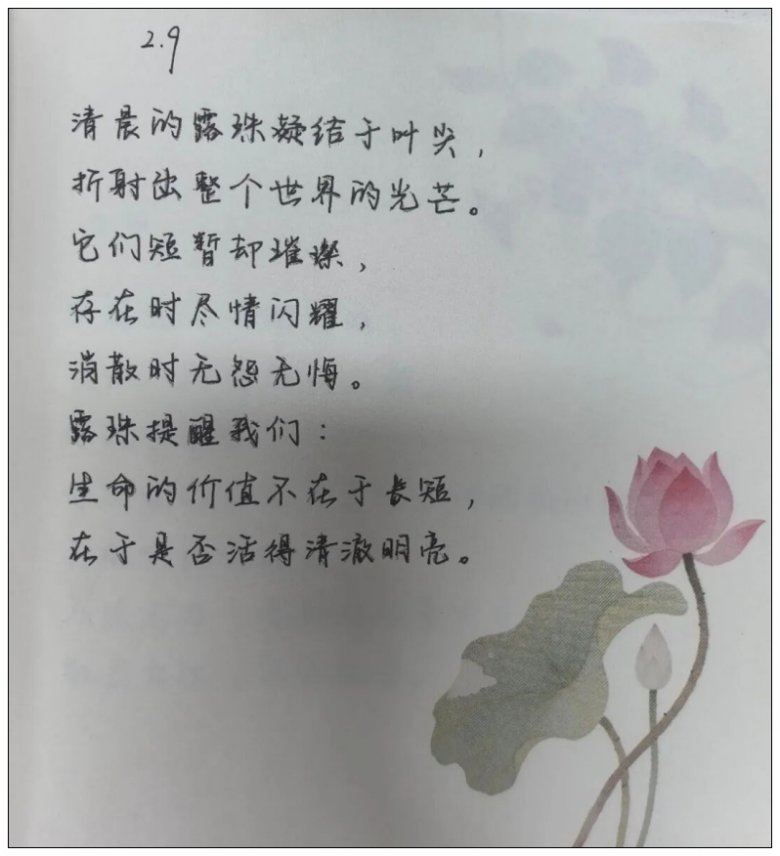 2.9
清晨的露珠凝结于叶尖，
折射出整个世界的光芒。
它们短暂却璀璨，
存在时尽情闪耀，
消散时无怨无悔。
露珠提醒我们：
生命的价值不在于长短，
在于是否活得清澈明亮。